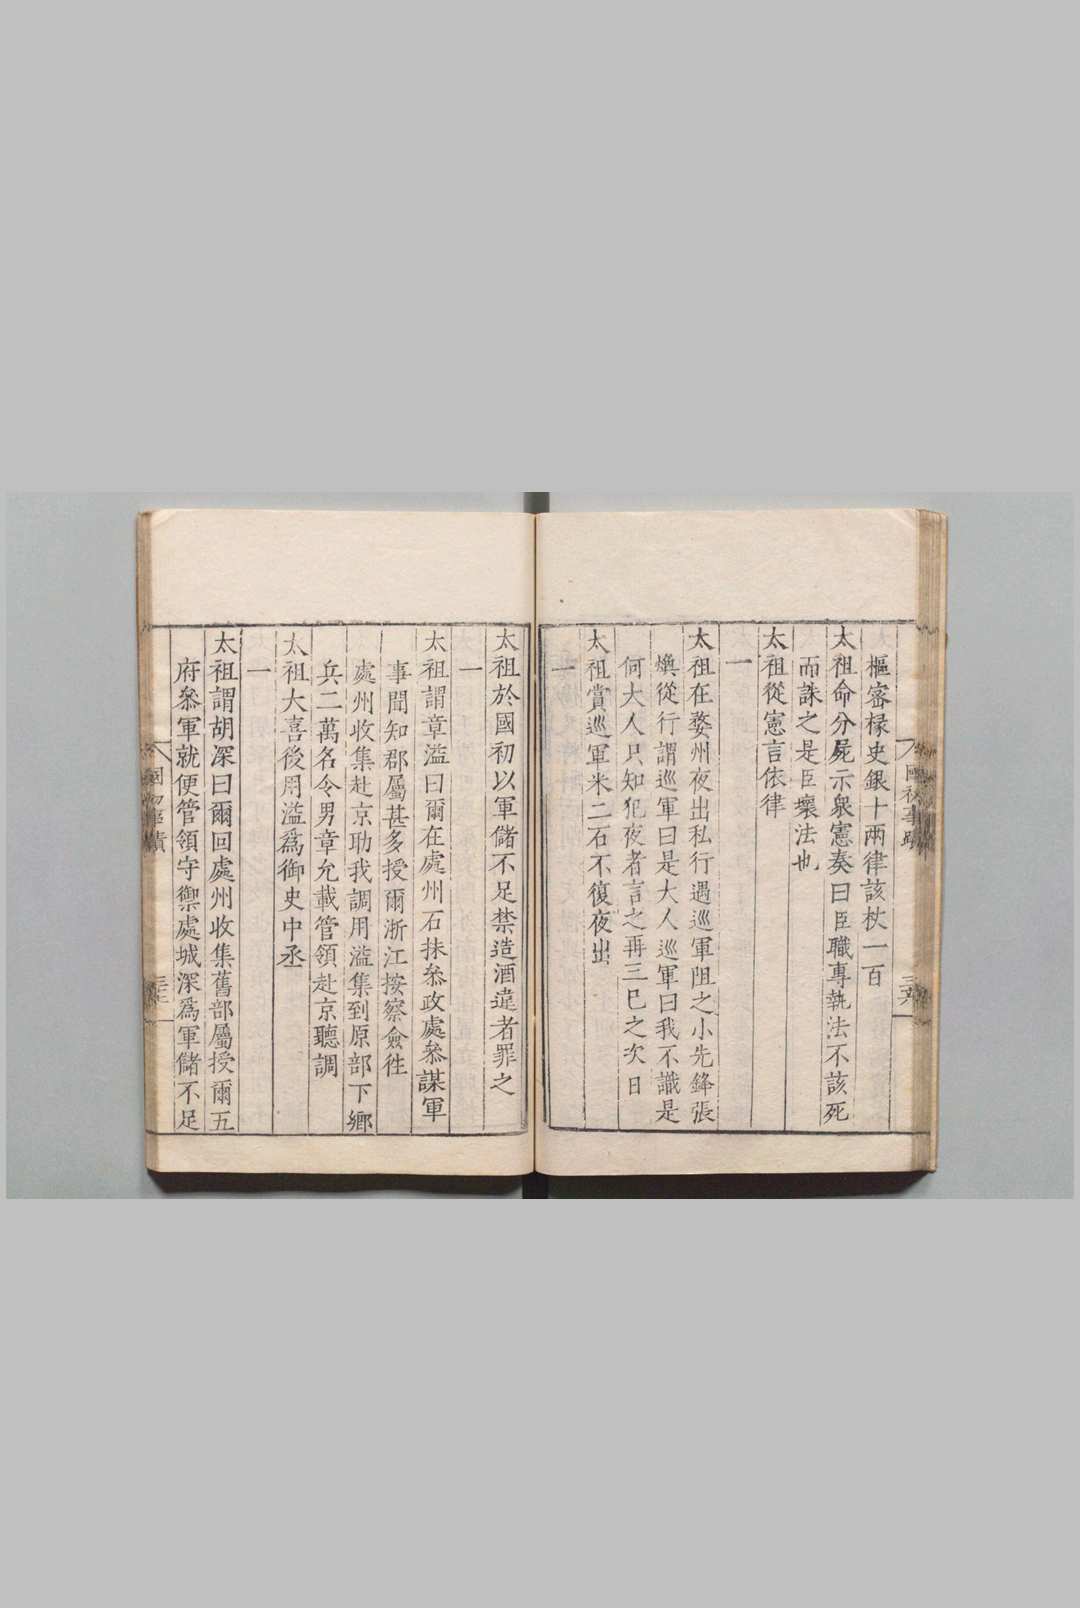 樞密椽史銀十兩律該杖一百
太祖命分屍示衆憲奏曰臣職專執法不該死
而誅之是臣壞法也
太祖從憲言依律
一
太祖在婺州夜出私行遇巡軍阻之小先鋒張
煥從行謂巡軍曰是大人巡軍曰我不識是
何大人只知犯夜者言之再三已之次日
太祖賞巡軍米二石不復夜出
一
太祖於國初以軍儲不足禁造酒違者罪之
一
太祖謂章溢曰爾在處州石抹叅政處叅謀軍
事聞知郡屬甚多授爾浙江按察僉徃
處州收集赴京助我調用溢集到原部下鄉
兵二萬名令男章允載管領赴京聽調
太祖大喜後用溢爲御史中丞
一
太祖謂胡深曰爾回處州收集舊部屬授爾五
府叅軍就便管領守禦處城深爲軍儲不足
國初事蹟